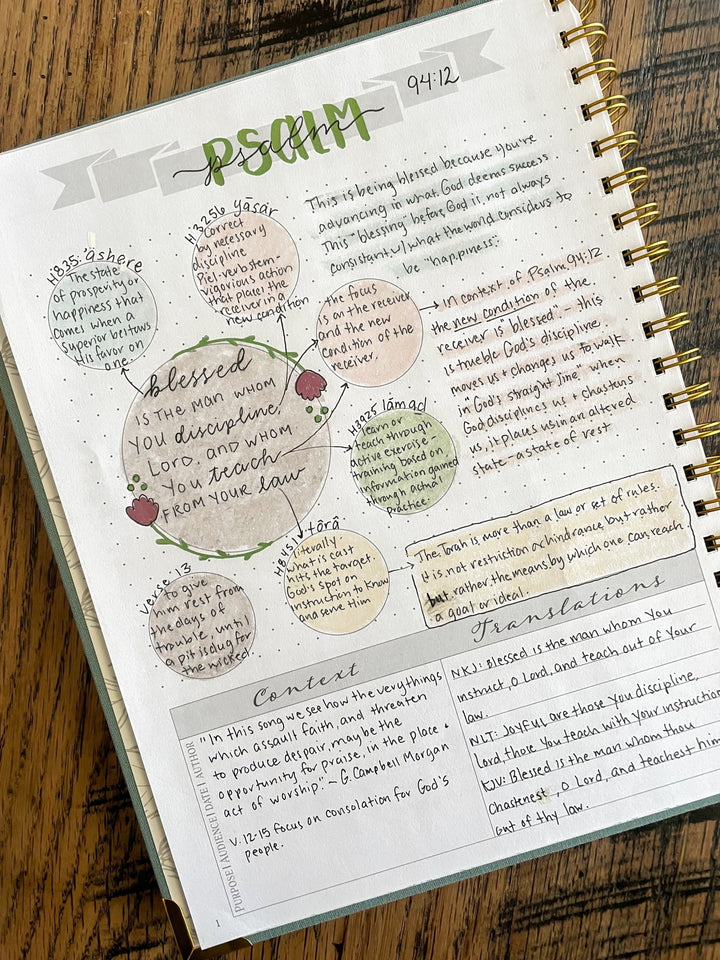 94:12
PSALM
psalm
This is being blessed because you're
advancing in what God deems success
This "blessing" before God is not always
consistant w/ what the world considers to
be "happiness".
H835: 'ashere
The state
of prosperity or
happiness that
comes when a
superior bestows
His favor on
one.
H3256 yāsar
Correct
by necessary
discipline
Piel-verb stem-
vigorious action
that places the
receiver in a
new condition
the focus
is on the receiver
and the new
condition of the
receiver.
in context of Psalm 94:12
the new condition of the
receiver is "blessed" - this
is trueble God's discipline.
moves us & changes us to walk
in "God's straight line." when
God disciplines us & chastens
us, it places us in an altered
state - a state of rest
blessed
IS THE MAN WHOM
YOU discipline,
LORD, AND WHOM
YOU teach
FROM YOUR law
H3925 lāmad
learn or
teach through
active exercise-
training based on
information gained
through actual
practice.
H8451 tôrâ
literally
what is cast
hits the target.
God's spot on
instruction to know
and serve Him
The Torah is more than a law or set of rules.
It is not restriction or hindrance but rather
but rather the means by which one can reach
a goal or ideal.
Verse 13
to give
him rest from
the days of
trouble, until
a pit is dug for
the wicked.
Context
PURPOSE | AUDIENCE | DATE | AUTHOR
"In this song we see how the very things
which assault faith, and threaten
to produce despair, may be the
opportunity for praise, in the place &
act of worship." - G. Campbell Morgan
V. 12-15 focus on consolation for God's
people.
Translations
NKJ: Blessed is the man whom You
instruct, O Lord, and teach out of Your
law.
NLT: Joyful are those You discipline,
Lord, those You teach with Your instruction
KJV: Blessed is the man whom thou
Chastenest, O Lord, and teachest him
out of thy law.
1